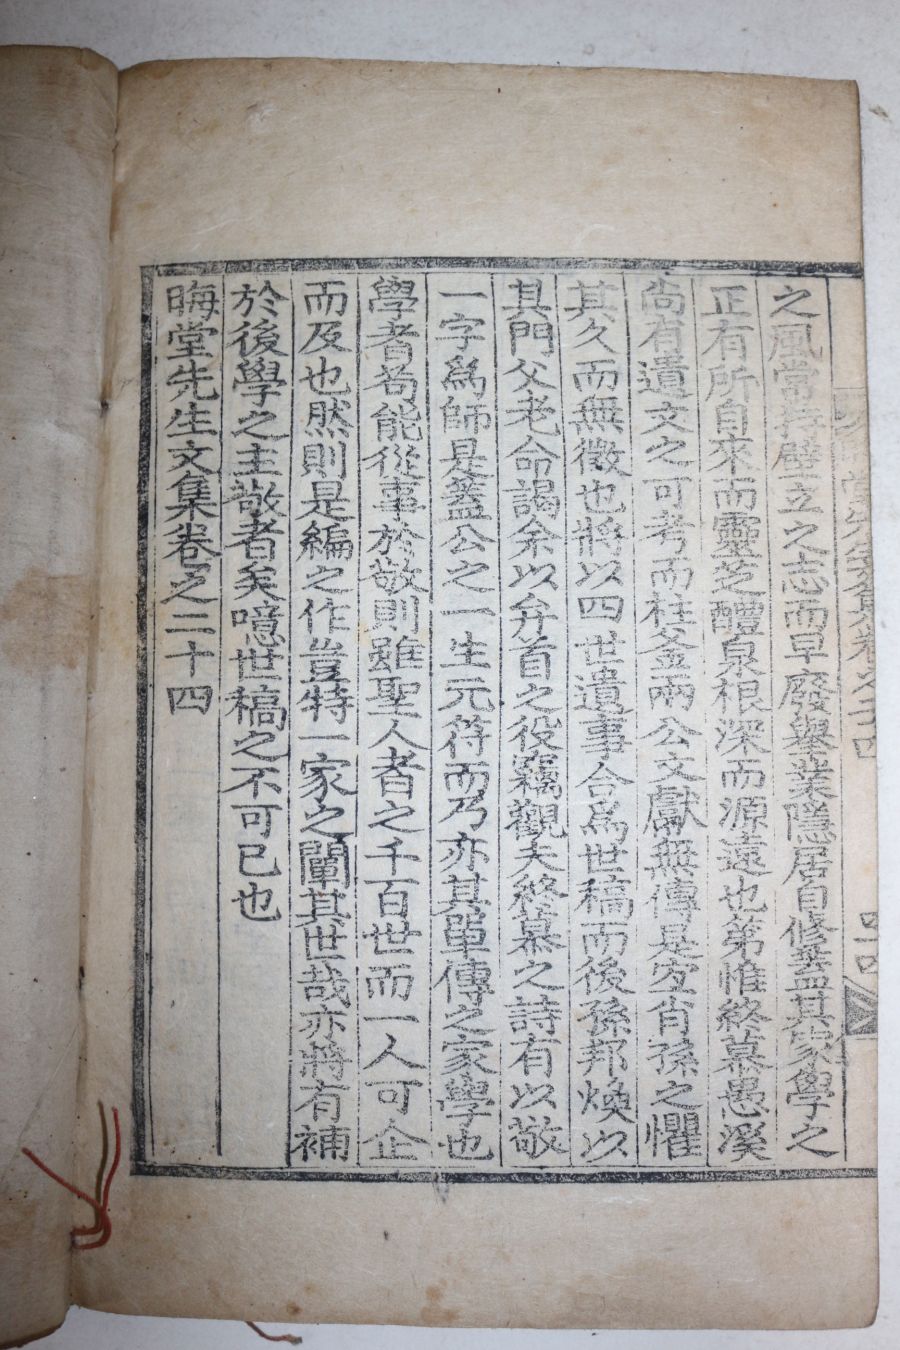 之風常持壁立之志而早廢擧業隱居自修蓋其家學之
正有所自來而靈芝醴泉根深而源遠也第惟終慕愚溪
尙有遺文之可考而柱釜兩公文獻無傳是宜肖孫之懼
其久而無徵也將以四世遺事合爲世稿而後孫邦煥以
其門父老命謁余以弁首之役竊觀夫終慕之詩有以敬
一字爲師是蓋公之一生元符而乃亦其單傳之家學也
學者苟能從事於敬則雖聖人者之千百世而一人可企
而及也然則是編之作豈特一家之闡其世哉亦將有補
於後學之主敬者矣噫世稿之不可已也
晦堂先生文集卷之二十四
堂先生文集卷之二十四
四十四